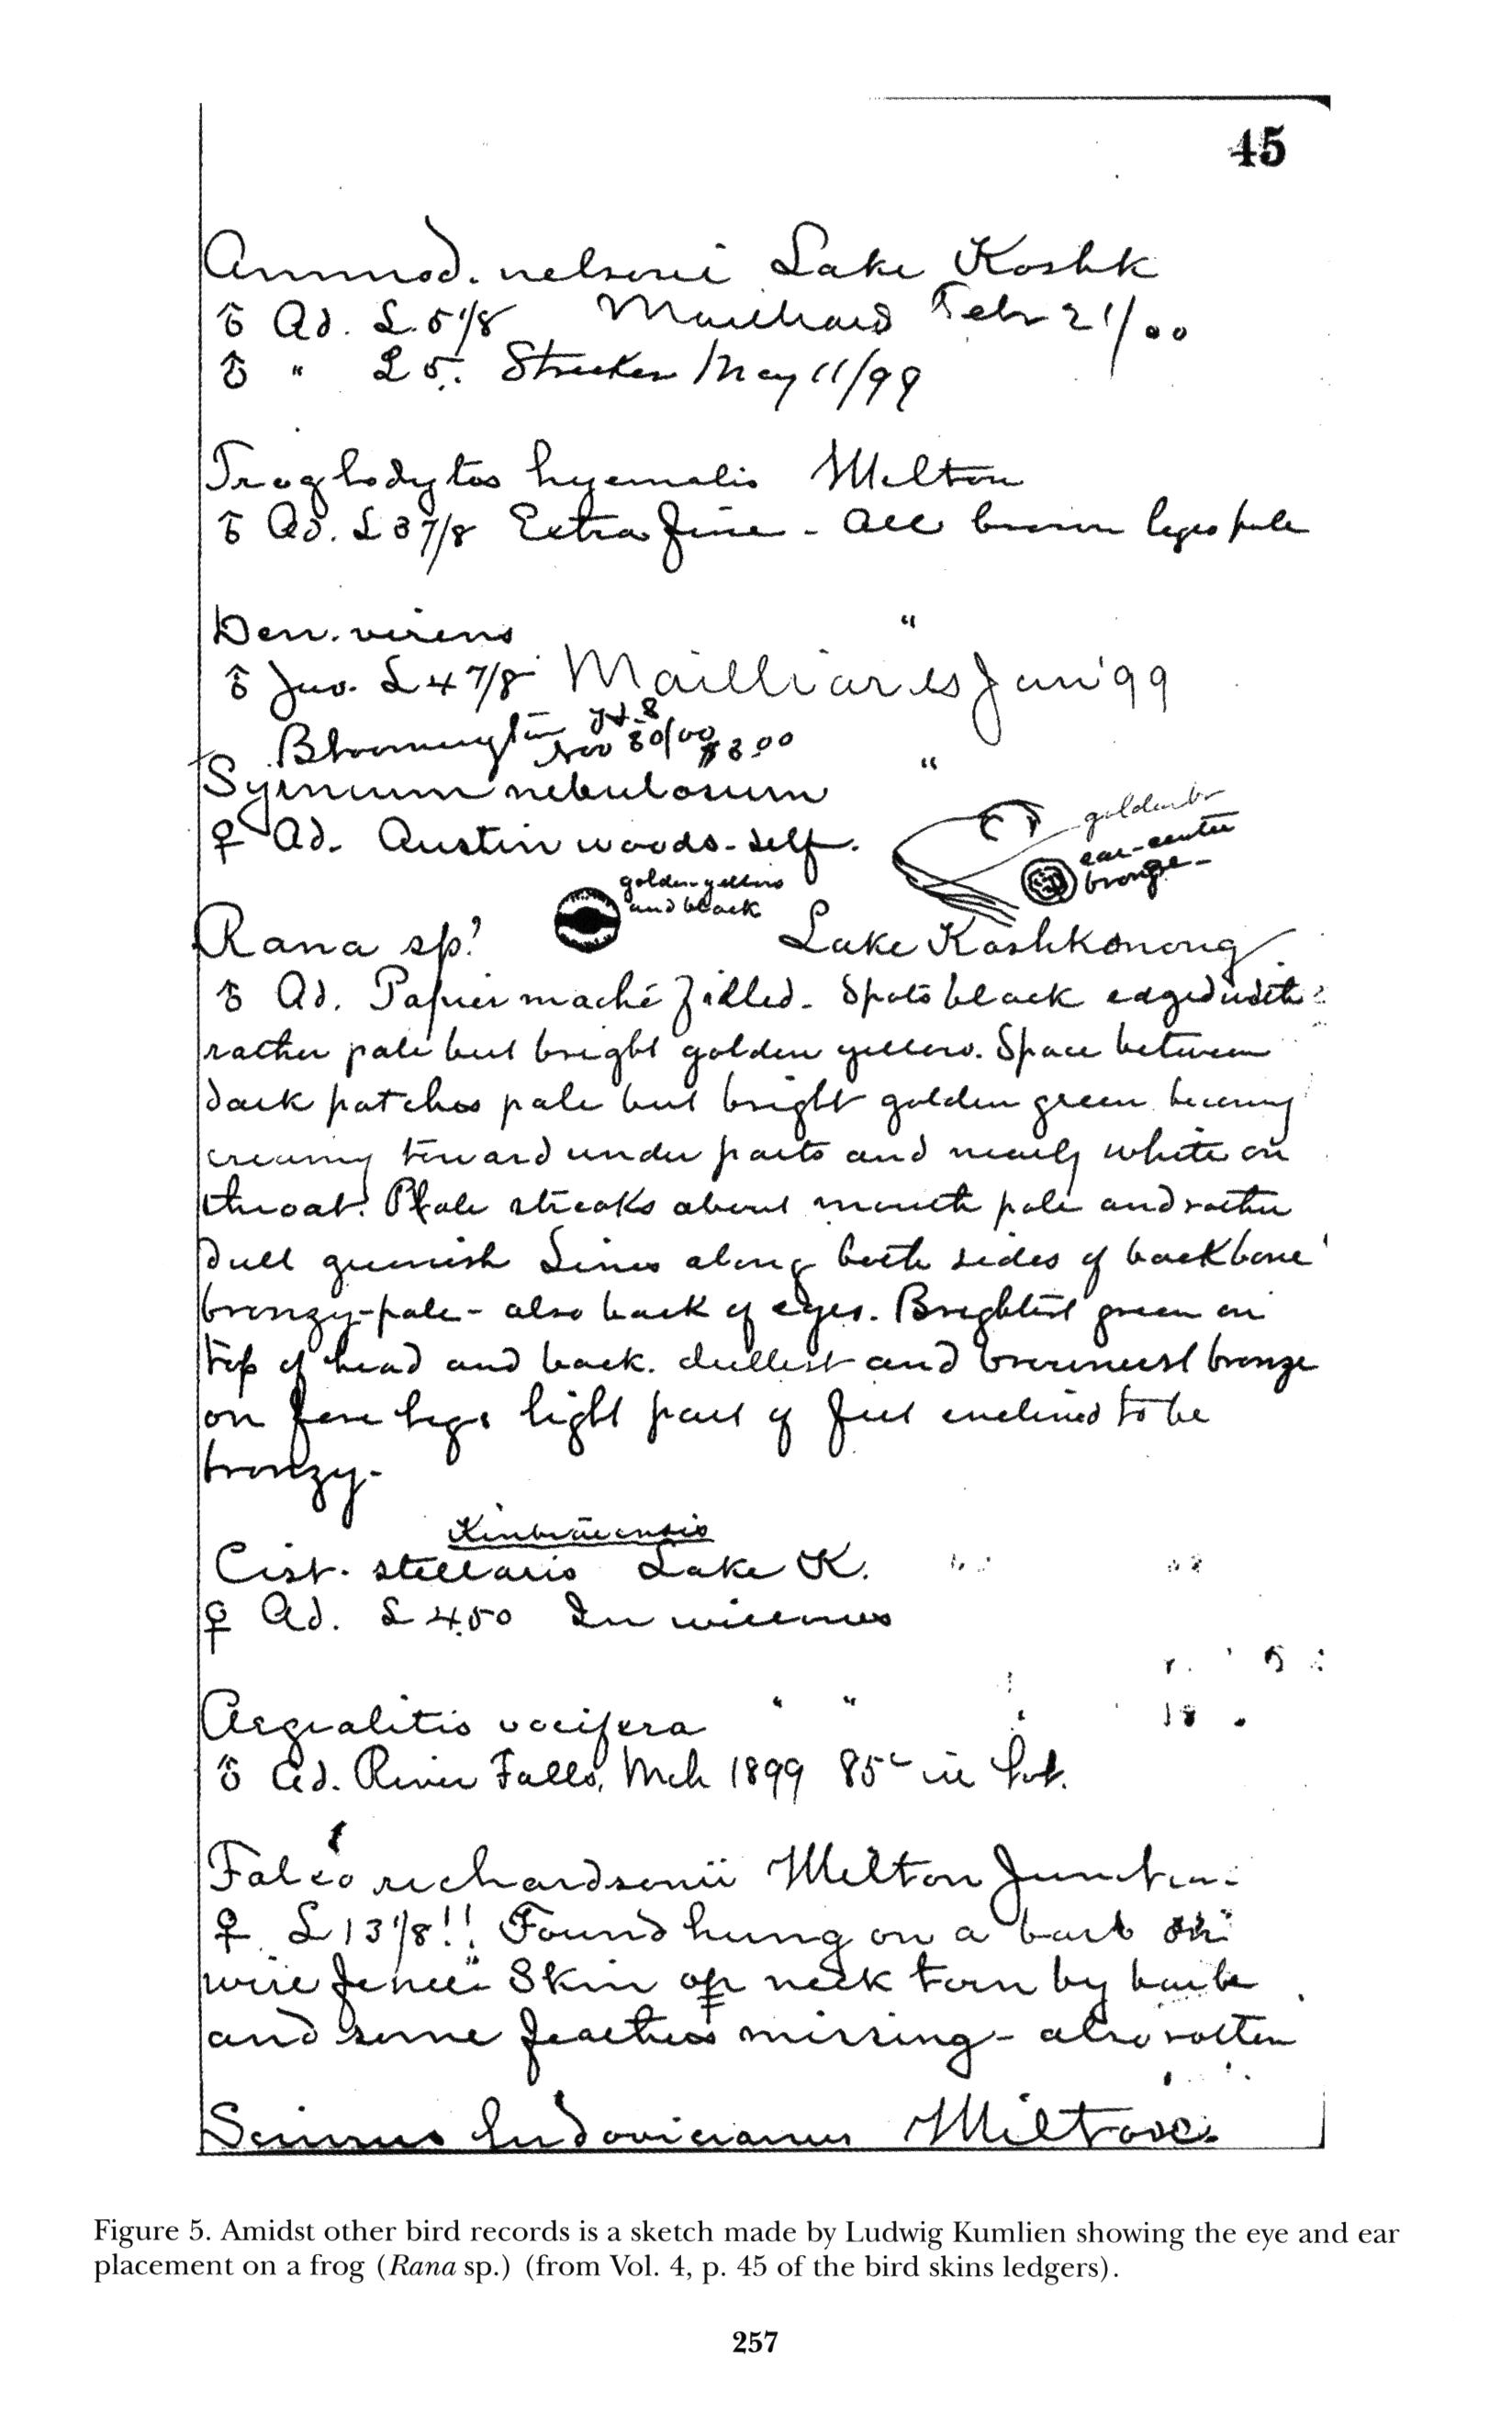 45
Ammod. nelsoni Lake Koshk
♂ Ad. L 5 1/8 Mailliard Febr 21/00
♂ " L 5. Strecker May 11/99
Troglodytes hyemalis Milton
♂ Ad. L 3 7/8 Extra fine - All brown legs pale
Den. virens "
♂ Juv. L 4 7/8 Mailliards Jan '99
Bloomington
Nov 30/00 $3.00
Syrnium nebulosum "
♀ Ad. Austin woods - self.
golden br
ear-center
bronze -
golden yellow
and black
Rana sp? Lake Koshkonong
♂ Ad. Papier maché filled. Spots black edged with
rather pale but bright golden yellow. Space between
dark patches pale but bright golden green becoming
creamy toward under parts and nearly white on
throat. Pale streaks about mouth pale and rather
dull greenish Lines along both sides of backbone
bronzy-pale - also back of eyes. Brightest green on
top of head and back. dullest and brownest bronze
on fore legs light part of feet inclined to be
bronzy-
Cist. stellaris Lake K.
♀ Ad. L 4.50 In willows
Aegialitis vocifera " "
♂ Ad. River Falls, Mch 1899 85c in lot.
Falco richardsonii Milton Junction
♀ L 13 1/8!! Found hung on a barb on
wire fence Skin of neck torn by barb
and some feathers missing - also rotten
Seiurus ludovicianus Milton
Figure 5. Amidst other bird records is a sketch made by Ludwig Kumlien showing the eye and ear
placement on a frog (Rana sp.) (from Vol. 4, p. 45 of the bird skins ledgers).
257